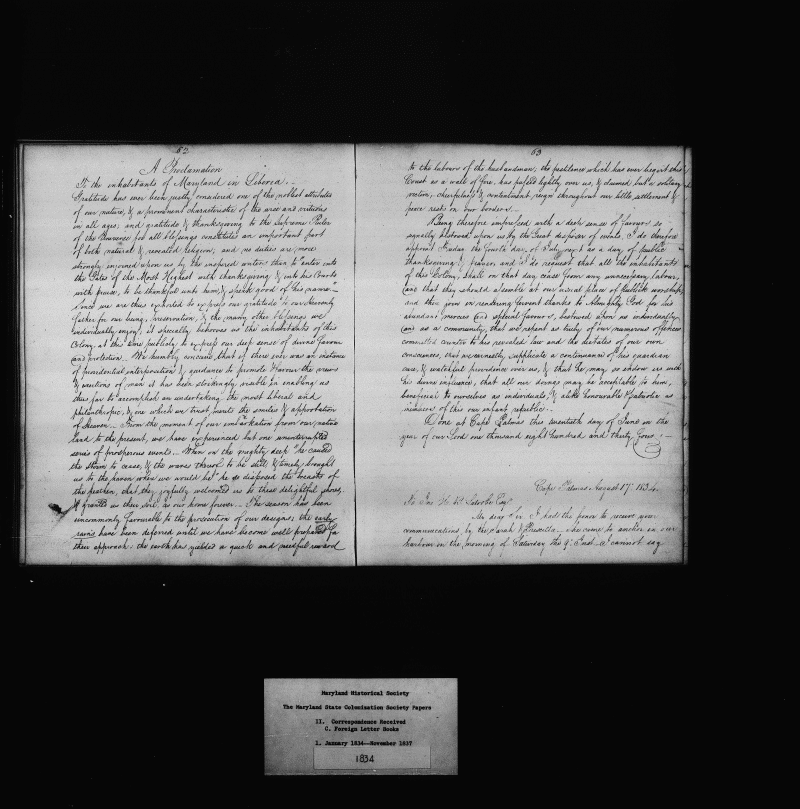 62
A Proclamation
To the inhabitants of Maryland in Liberia..
Gratitude has ever been justly considered one of the noblest attributes
of our nature, & a prominent characteristic of the wise and virtuous
in all ages; and gratitude & thanksgiving to the Supreme Ruler
of the Universe for all blessings constitutes an important part
of both natural & revealed religion; and no duties are more
strongly enjoined upon us by the inspired writers than to "enter into
the Gates of the Most Highest with thanksgiving & into his Courts
with praise, to be thankful unto him, & speak good of his name"
Since we are thus exhorted to express our gratitude to our heavenly
father for our being, preservation, & the many other blessings we
individually enjoy, it specially behooves us the inhabitants of this
Colony at this time publicly to express our deep sense of divine favour
and protection. We humbly conceive that if there ever was an instance
of providential interposition & guidance to promote & favour the views
& exertions of man it has been strikingly visible in enabling us
thus far to accomplish an undertaking the most liberal and
philanthropic, & one which we trust merits the smiles & approbation
of Heaven.. From the moment of our embarkation from our native
land to the present, we have experienced but one uninterrupted
series of prosperous events.. When on the mighty deep "he caused
the storm to cease, & the waves thereof to be still & timely brought
us to the haven where we would be" he disposed the hearts of
the heathen, that they joyfully welcomed us to these delightful shores,
& granted us their soil, as our home forever.. The season has been
uncommonly favourable to the prosecution of our designs; the early
rains have been deferred until we have become well prepared for
their approach. the earth has yielded a quick and needful reward
63
to the labours of the husbandman; the pestilence which has ever begirt this
Coast as a wall of fire, has passed lightly over us, & claimed but a solitary
victim, cheerfulness & contentment reign throughout our little settlement &
peace rests in our borders..
Being therefore impressed with a deep sense of favours so
signally bestowed upon us by the Great disposer of events, I do therefore
appoint Friday the fourth day of July next as a day of public
thanksgiving & prayer, and I do request that all the inhabitants
of this Colony, shall on that day cease from any unnecessary labour,
and that they should assemble at our usual place of Public worship
and there join in rendering fervent thanks to Almighty God for his
abundant mercies and special favours, bestowed upon us individually
and as a community, that we repent as truly of our numerous offences
committed counter to his revealed law and the dictates of our own
consciences, that we earnestly supplicate a continuance of his guardian
care, & watchful providence over us, & that he may so endow us with
his divine influence, that all our doings may be acceptable to him,
beneficial to ourselves as individuals, & alike honourable & salutary as
members of this our infant republic..
Done at Cape Palmas this twentieth day of June in the
year of our Lord one thousand eight hundred and thirty four.
Cape Palmas August 17th 1834.
To Jno H. B. Latrobe Esqr
My dear Sir. I had the honor to receive your
communications by the Sarah & Priscilla. She came to anchor in our
harbour on the morning of Saturday the 9th Inst. I cannot say
Maryland Historical Society
The Maryland State Colonization Society Papers
II. Correspondence Received
C. Foreign Letter Books
1. January 1834--November 1837
1834